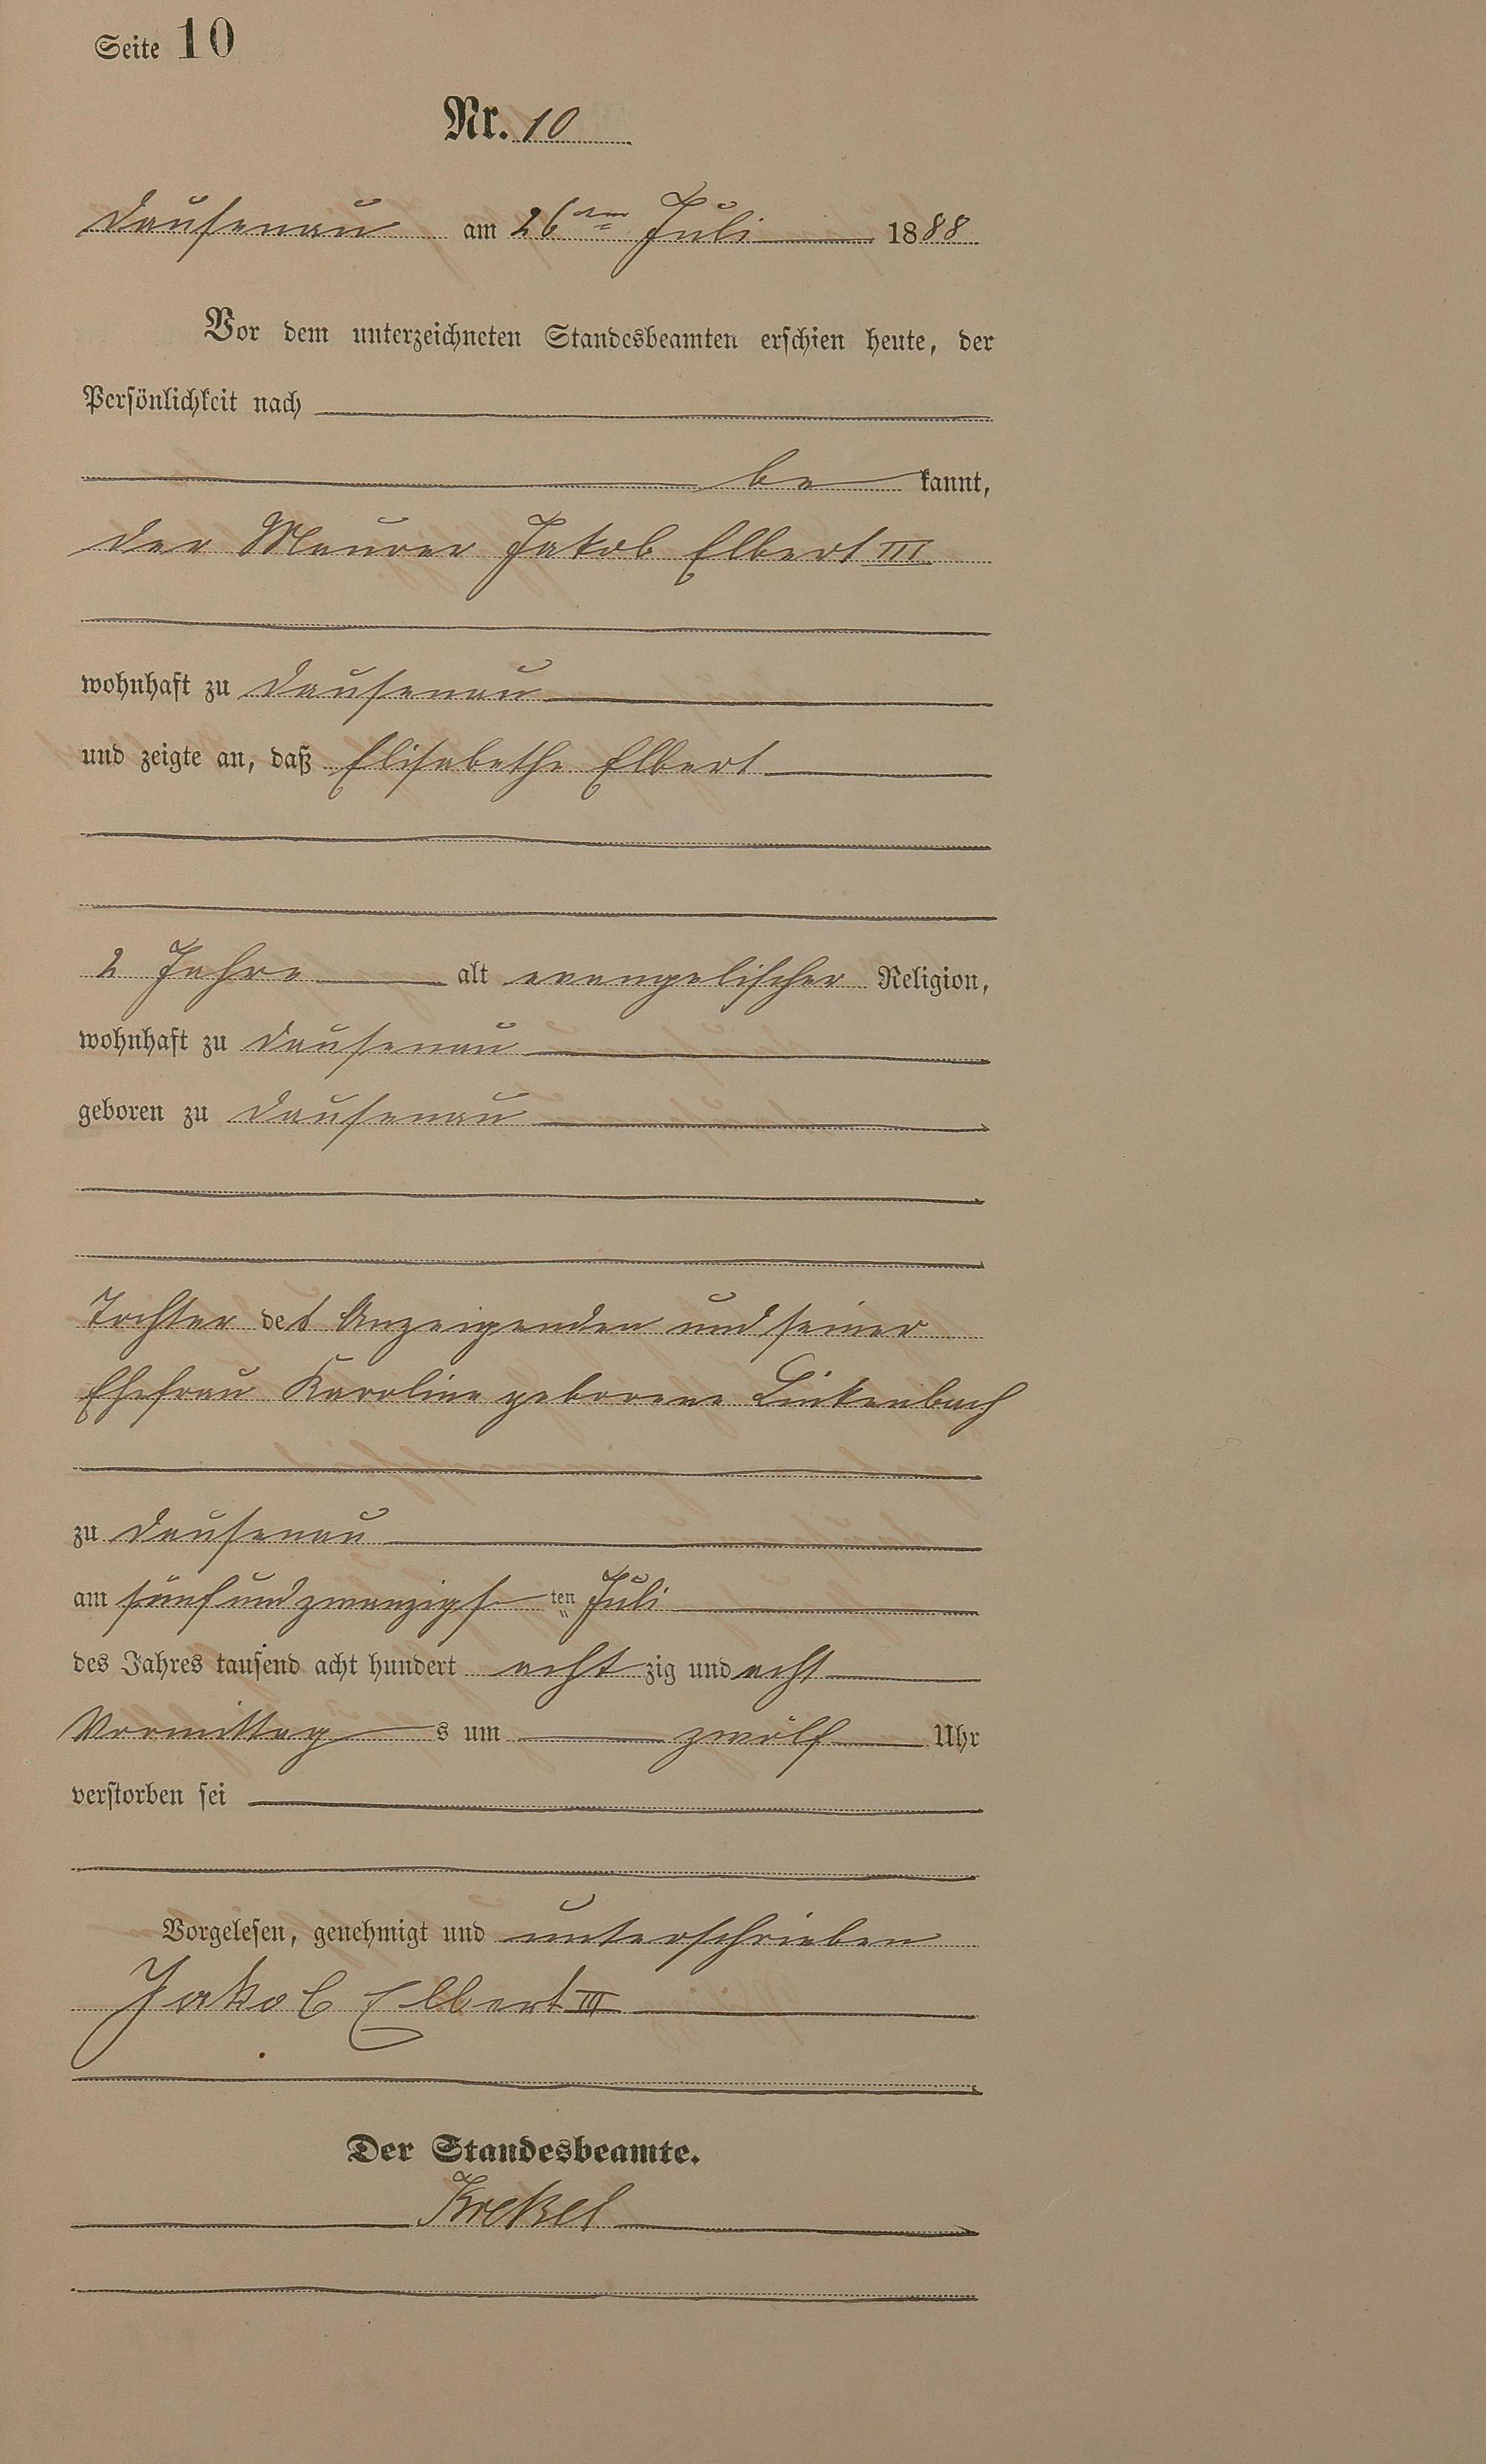 Seite 10
Nr. 10
Dausenau am 26ten Juli 1888
Vor dem unterzeichneten Standesbeamten erschien heute, der
Persönlichkeit nach
be kannt,
der Maurer Jakob Elbert III
wohnhaft zu Dausenau
und zeigte an, daß Elisabethe Elbert
2 Jahre alt evangelischer Religion,
wohnhaft zu Dausenau
geboren zu Dausenau
Tochter des Anzeigenden und seiner
Ehefrau Karoline geborene Linkenbach
zu Dausenau
am fünf und zwanzigs ten Juli
des Jahres tausend acht hundert acht zig und acht
Vormittag s um zwölf Uhr
verstorben sei
Vorgelesen, genehmigt und unterschrieben
Jakob Elbert III
Der Standesbeamte.
Krekel